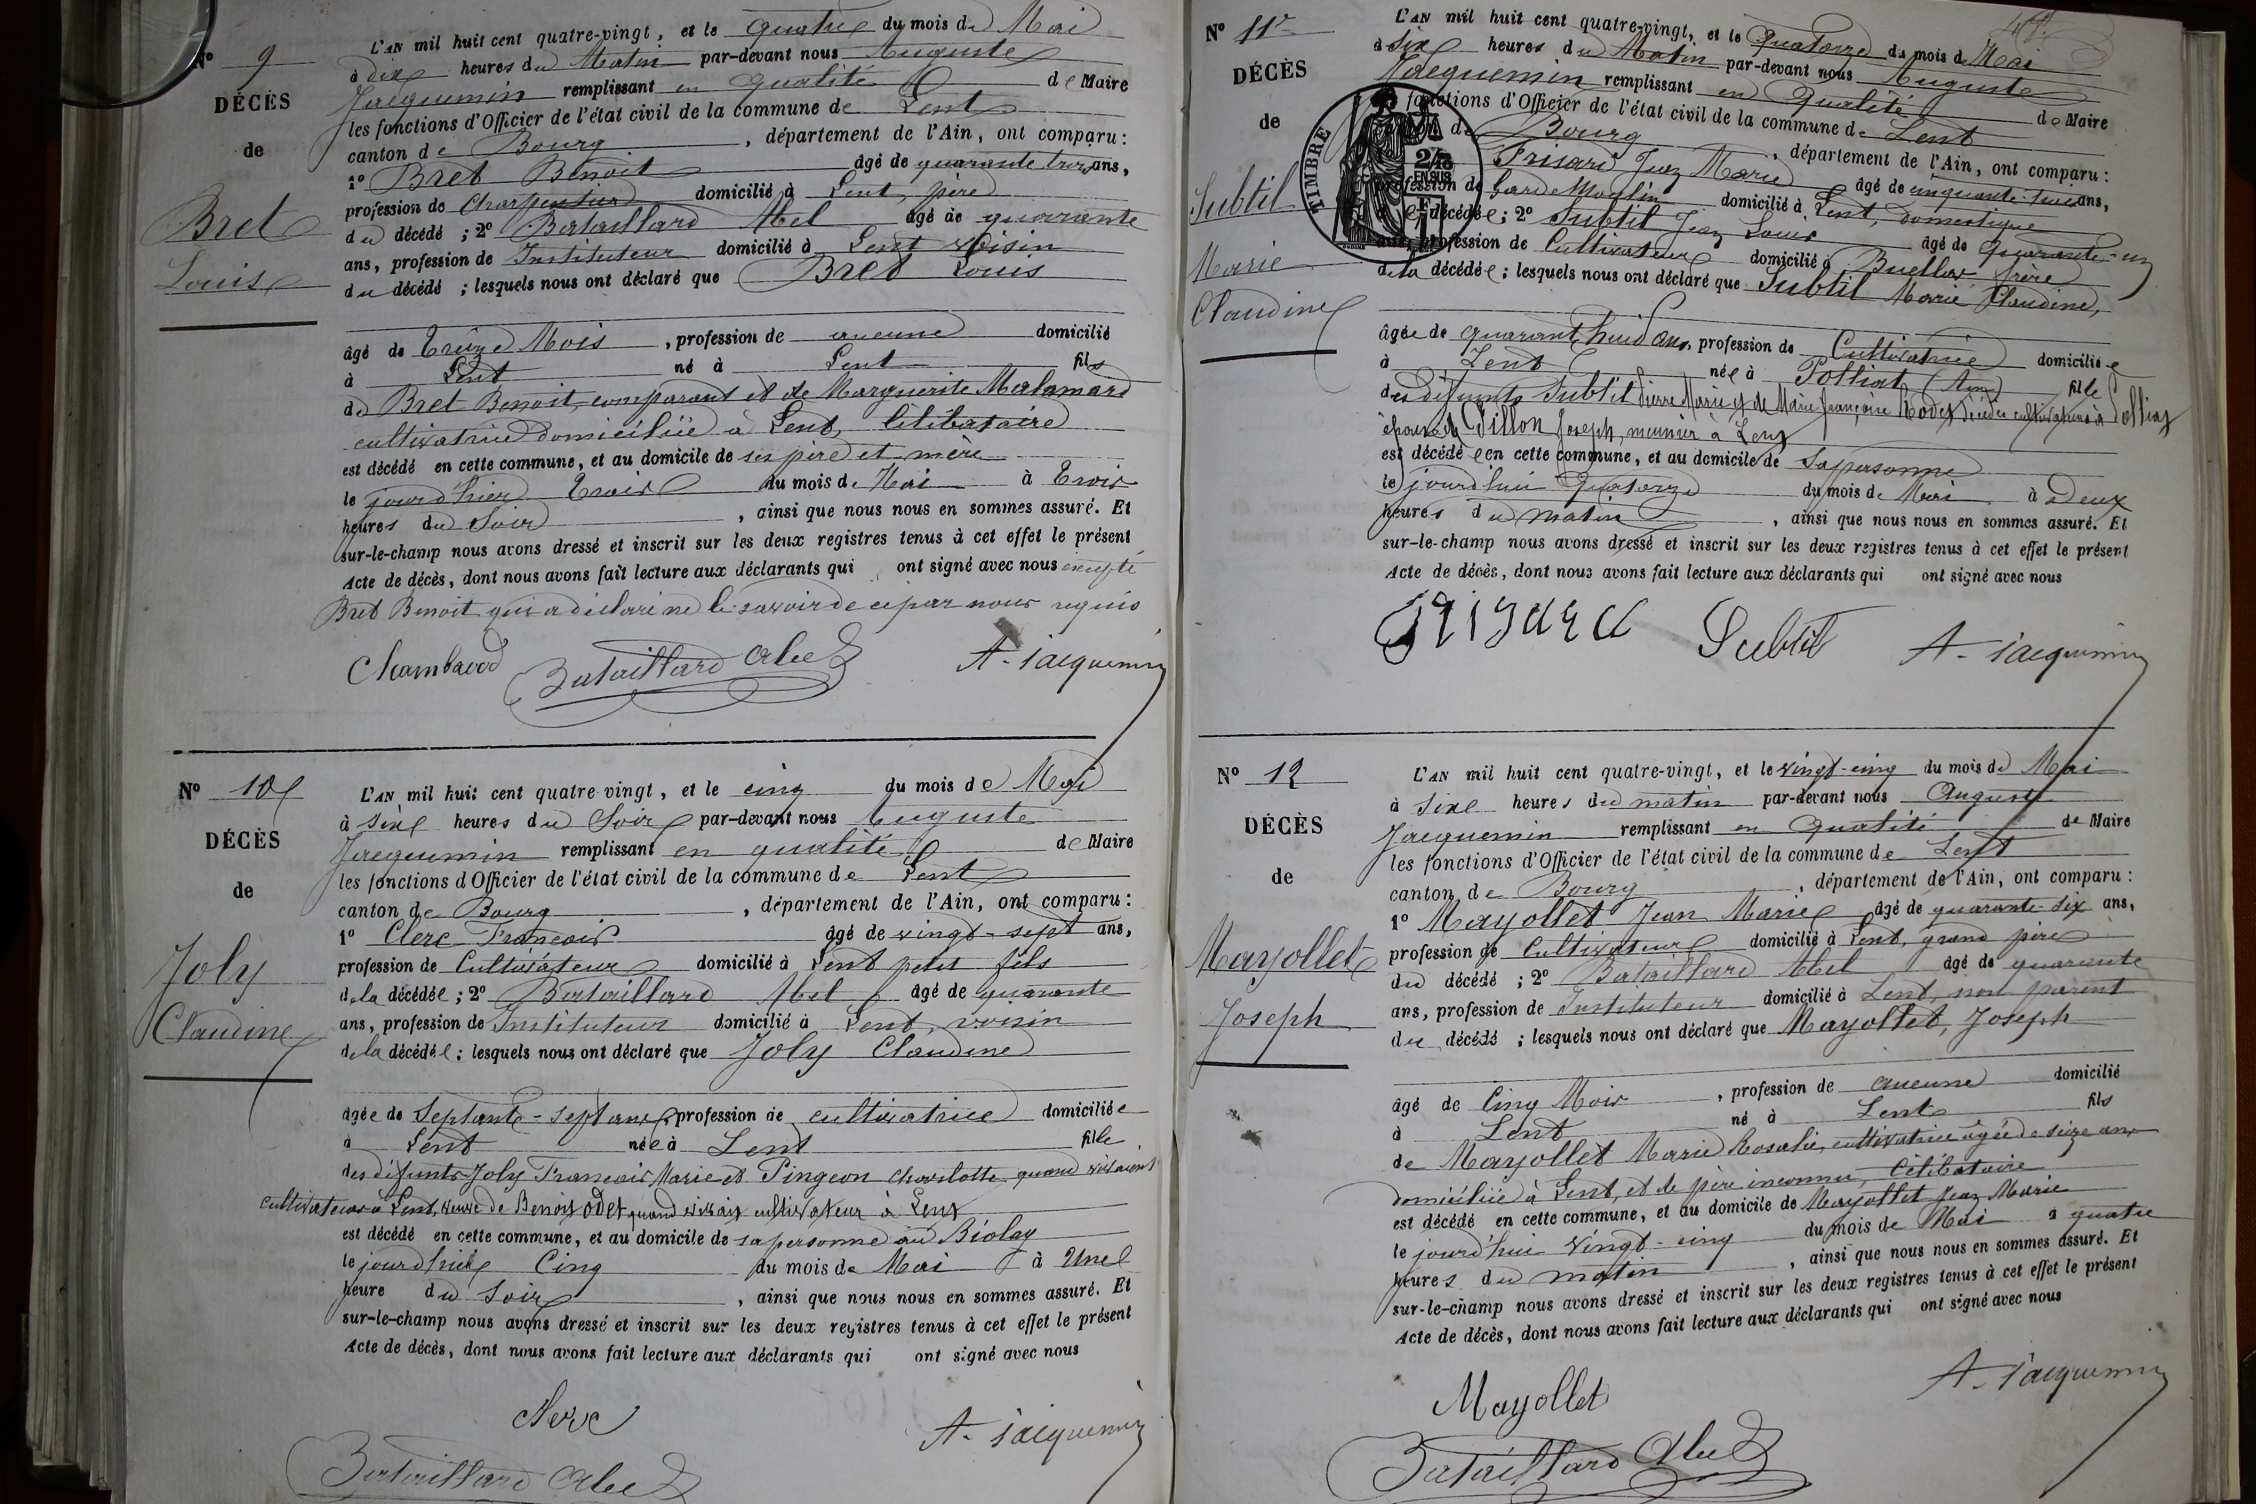 N° 9
DÉCÈS
de
Bret
Louis
L'AN mil huit cent quatre-vingt, et le quatre du mois de Mai
à dix heures du Matin par-devant nous Auguste
Jacquemin remplissant en qualité de Maire
les fonctions d'Officier de l'état civil de la commune de Lent
canton de Bourg, département de l'Ain, ont comparu :
1° Bret Benoit âgé de quarante trois ans,
profession de Charpentier domicilié à Lent, père
du décédé ; 2° Bataillard Abel âgé de quarante
ans, profession de Instituteur domicilié à Lent voisin
du décédé ; lesquels nous ont déclaré que Bret Louis
âgé de Treize Mois, profession de aucune domicilié
à Lent né à Lent fils
de Bret Benoit, comparant et de Marguerite Malamard
cultivatrice domiciliée à Lent, Célibataire
est décédé en cette commune, et au domicile de ses père et mère
le jourd'hier Trois du mois de Mai à Trois
heures du Soir, ainsi que nous nous en sommes assuré. Et
sur-le-champ nous avons dressé et inscrit sur les deux registres tenus à cet effet le présent
Acte de décès, dont nous avons fait lecture aux déclarants qui ont signé avec nous excepté
Bret Benoit qui a déclaré ne le savoir de ce par nous requis
Chambaud Bataillard Abel A. Jacquemin
N° 10
DÉCÈS
de
Joly
Claudine
L'AN mil huit cent quatre-vingt, et le cinq du mois de Mai
à six heures du Soir par-devant nous Auguste
Jacquemin remplissant en qualité de Maire
les fonctions d'Officier de l'état civil de la commune de Lent
canton de Bourg, département de l'Ain, ont comparu :
1° Clerc François âgé de vingt-sept ans,
profession de Cultivateur domicilié à Lent petit fils
de la décédée ; 2° Bataillard Abel âgé de quarante
ans, profession de Instituteur domicilié à Lent, voisin
de la décédée ; lesquels nous ont déclaré que Joly Claudine
âgée de Septante-sept ans, profession de cultivatrice domiciliée
à Lent née à Lent fille
des défunts Joly François Marie et Pingeon Charlotte quand vivaient
cultivateurs à Lent, veuve de Benoit Odet quand vivait cultivateur à Lent
est décédé en cette commune, et au domicile de sa personne au Biolay
le jourd'hui Cinq du mois de Mai à Une
heure du Soir, ainsi que nous nous en sommes assuré. Et
sur-le-champ nous avons dressé et inscrit sur les deux registres tenus à cet effet le présent
Acte de décès, dont nous avons fait lecture aux déclarants qui ont signé avec nous
Clerc A. Jacquemin
Bataillard Abel
N° 11
DÉCÈS
de
Subtil
Marie
Claudine
TIMBRE
2/10 EN SUS
L'AN mil huit cent quatre-vingt, et le Quatorze du mois de Mai
à six heures du Matin par-devant nous Auguste
Jacquemin remplissant en Qualité de Maire
fonctions d'Officier de l'état civil de la commune de Lent
de Bourg, département de l'Ain, ont comparu :
Frisard Jean Marie âgé de cinquante trois ans,
profession de Garde Moulin domicilié à Lent, domestique
décédée ; 2° Subtil Jean Louis âgé de Quarante-un
ans, profession de Cultivateur domicilié à Buellas frère
de la décédée ; lesquels nous ont déclaré que Subtil Marie Claudine,
âgée de quarant huit ans, profession de Cultivatrice domiciliée
à Lent née à Polliat (Ain) fille
des défunts Subtil Pierre Marie et de Marie Françoise Rodet décédés cultivateurs à Polliat
épouse de Pillon Joseph, meunier à Lent
est décédée en cette commune, et au domicile de sa personne
le jourd'hui Quatorze du mois de Mai à Deux
heures du matin, ainsi que nous nous en sommes assuré. Et
sur-le-champ nous avons dressé et inscrit sur les deux registres tenus à cet effet le présent
Acte de décès, dont nous avons fait lecture aux déclarants qui ont signé avec nous
Frisard Subtil A. Jacquemin
N° 12
DÉCÈS
de
Mayollet
Joseph
L'AN mil huit cent quatre-vingt, et le vingt-cinq du mois de Mai
à sixe heures du matin par-devant nous Auguste
Jacquemin remplissant en Qualité de Maire
les fonctions d'Officier de l'état civil de la commune de Lent
canton de Bourg, département de l'Ain, ont comparu :
1° Mayollet Jean Marie âgé de quarante-six ans,
profession de Cultivateur domicilié à Lent, grand père
du décédé ; 2° Bataillard Abel âgé de quarante
ans, profession de Instituteur domicilié à Lent, non parent
du décédé ; lesquels nous ont déclaré que Mayollet, Joseph
âgé de Cinq Mois, profession de aucune domicilié
à Lent né à Lent fils
de Mayollet Marie Rosalie, cultivatrice âgée de seize ans
domiciliée à Lent, et de père inconnu, Célibataire
est décédé en cette commune, et au domicile de Mayollet Jean Marie
le jourd'hui vingt-cinq du mois de Mai à quatre
heures du matin, ainsi que nous nous en sommes assuré. Et
sur-le-champ nous avons dressé et inscrit sur les deux registres tenus à cet effet le présent
Acte de décès, dont nous avons fait lecture aux déclarants qui ont signé avec nous
Mayollet A. Jacquemin
Bataillard Abel